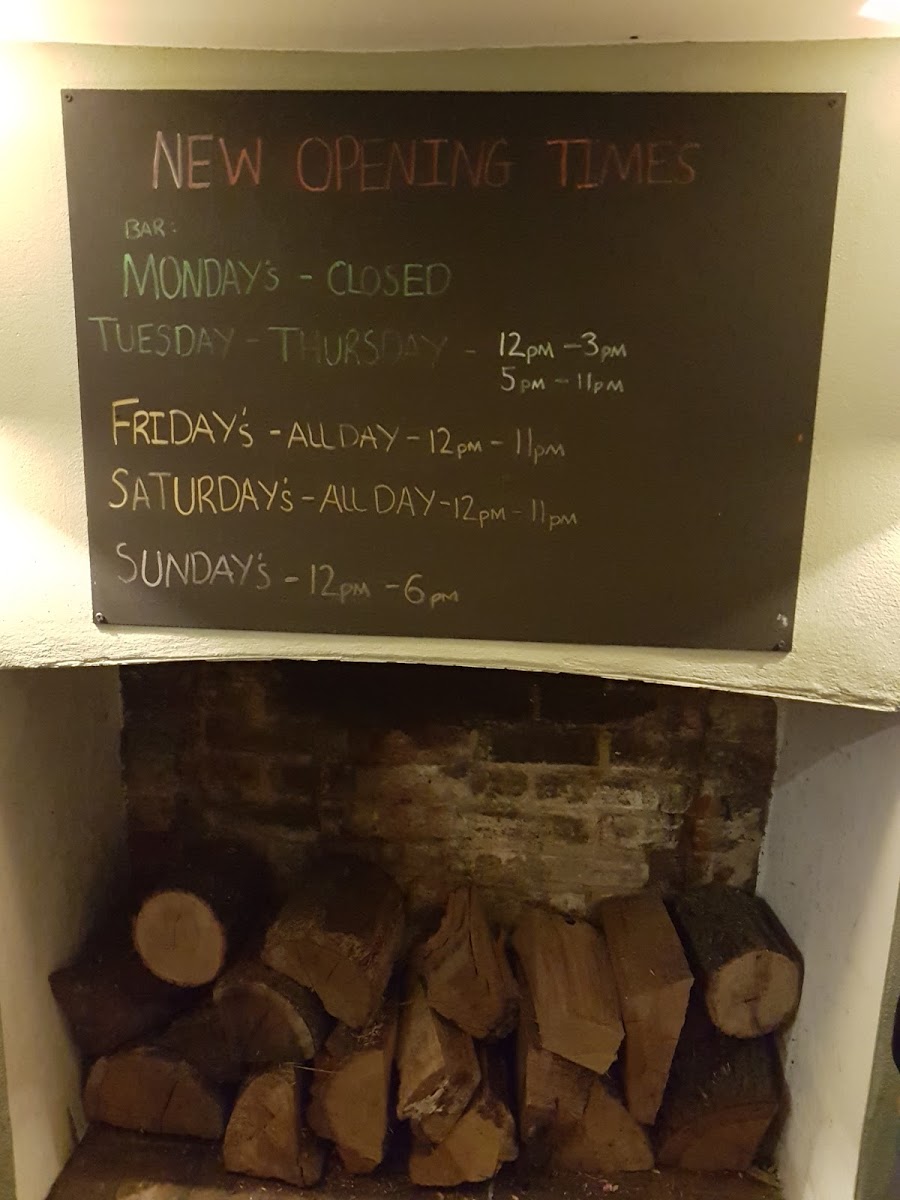 NEW OPENING TIMES
BAR:
MONDAY's - CLOSED
TUESDAY - THURSDAY - 12PM - 3PM
5PM - 11PM
FRIDAY's - ALL DAY - 12PM - 11PM
SATURDAY's - ALL DAY - 12PM - 11PM
SUNDAY's - 12PM - 6PM